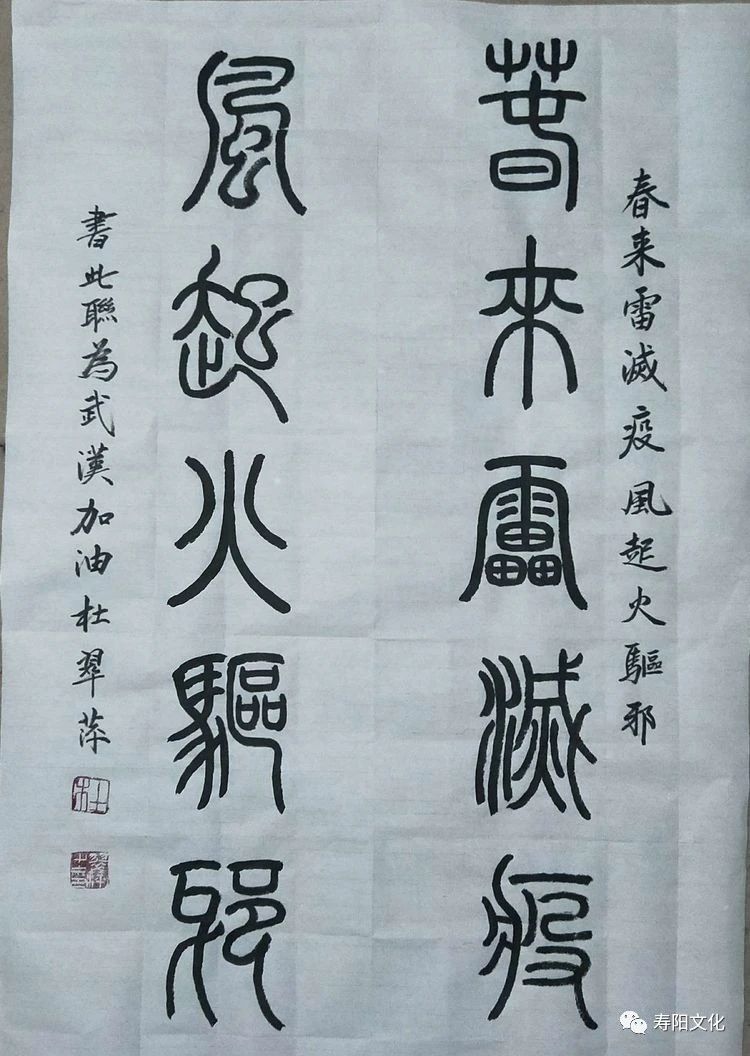 春来雷滅疫風起火驅邪
萅來靁滅疫
風起火驅邪
書此聯為武漢加油杜翠萍
杜
寿阳文化